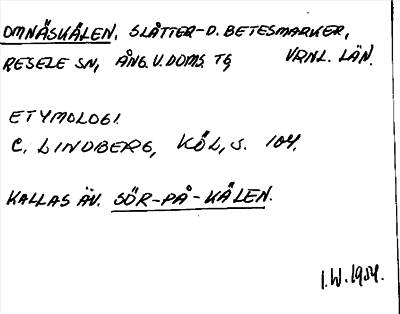 OMNÄSKÅLEN, SLÅTTER-O. BETESMARKER,
RESELE SN, ÅNG. V. DOMS. TG VRNL. LÄN.
ETYMOLOGI.
C. LINDBERG, KÖL, S. 104.
KALLAS ÄV. SÖR-PÅ-KÅLEN.
I.W. 1984.